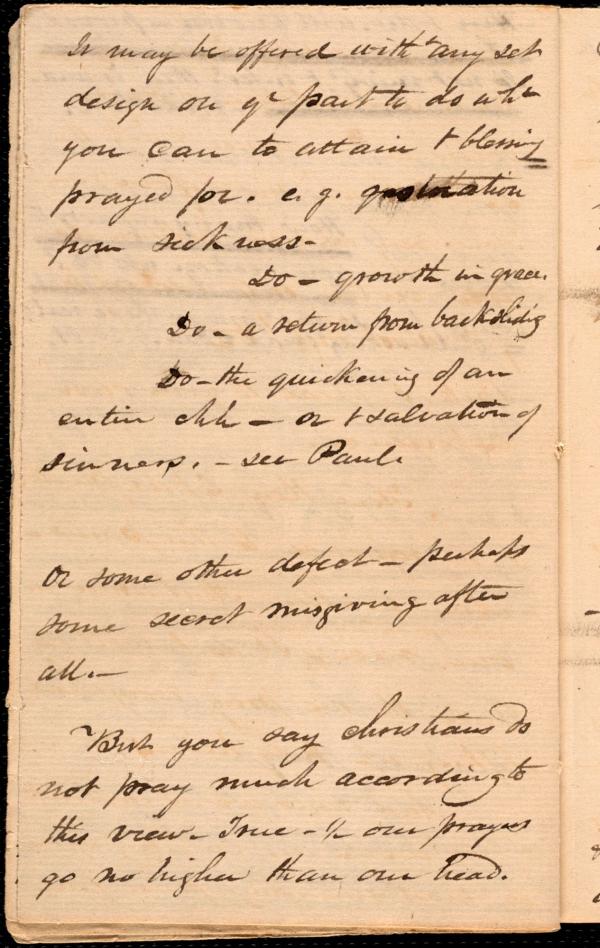 It may be offered with^t any set
design on y^r part to do wh^t
you can to attain t blessing
prayed for. e. g.
from sickness -
Do - growth in grace.
Do - a return from backslid'g
Do - the quickening of an
entire chh - or t salvation of
sinners. - see Paul.
Or some other defect - perhaps
some secret misgiving after
all. -
But you say christians do
not pray much according to
this view - True - & our prayers
go no higher than our head.